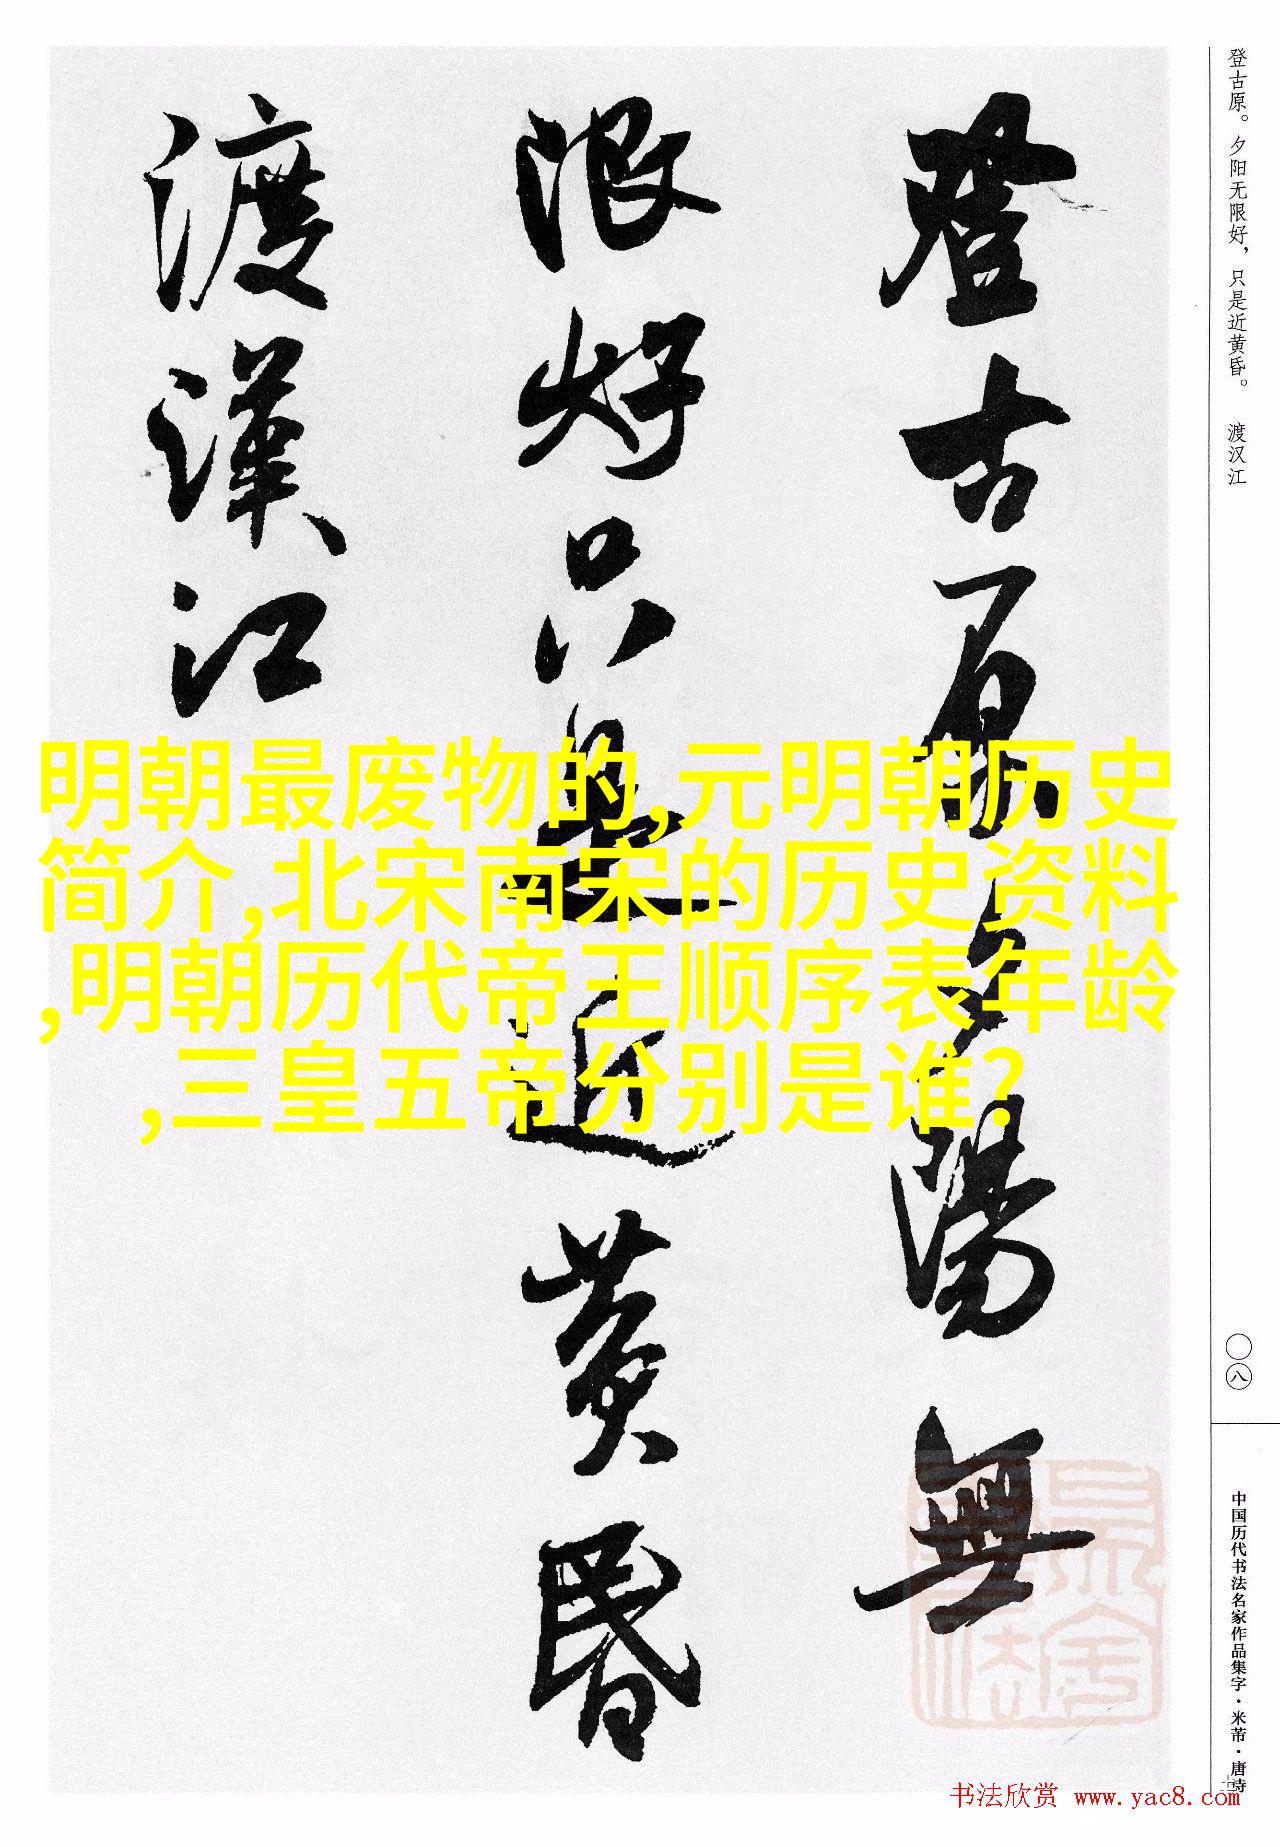 登古原夕陽無
限好只是近黄昏
渡漢江
明朝最废物的,元明朝历史
简介,北宋南宋的历史资料
,明朝历代帝王顺序表年龄
,三皇五帝分别是谁?
登古原。夕阳无限好，只是近黄昏。 渡汉江
〇八
中国历代书法名家作品集字·米芾·唐诗
书法欣赏 www.yac8.com